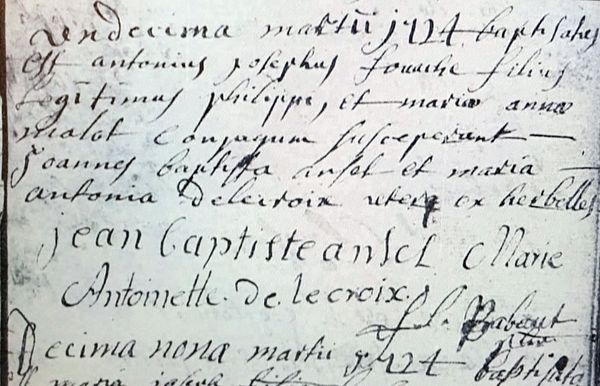 undecima martii 1724 baptisatus
est antonius josephus fouache filius
legitimus philippi, et mariæ annæ
malot conjugum susceperunt
joannes baptista ansel et maria
antonia delecroix uterq ex herbelles
jean baptiste ansel Marie
Antoinette de lecroix
Decima nona martii 1724 baptisata
maria josepha